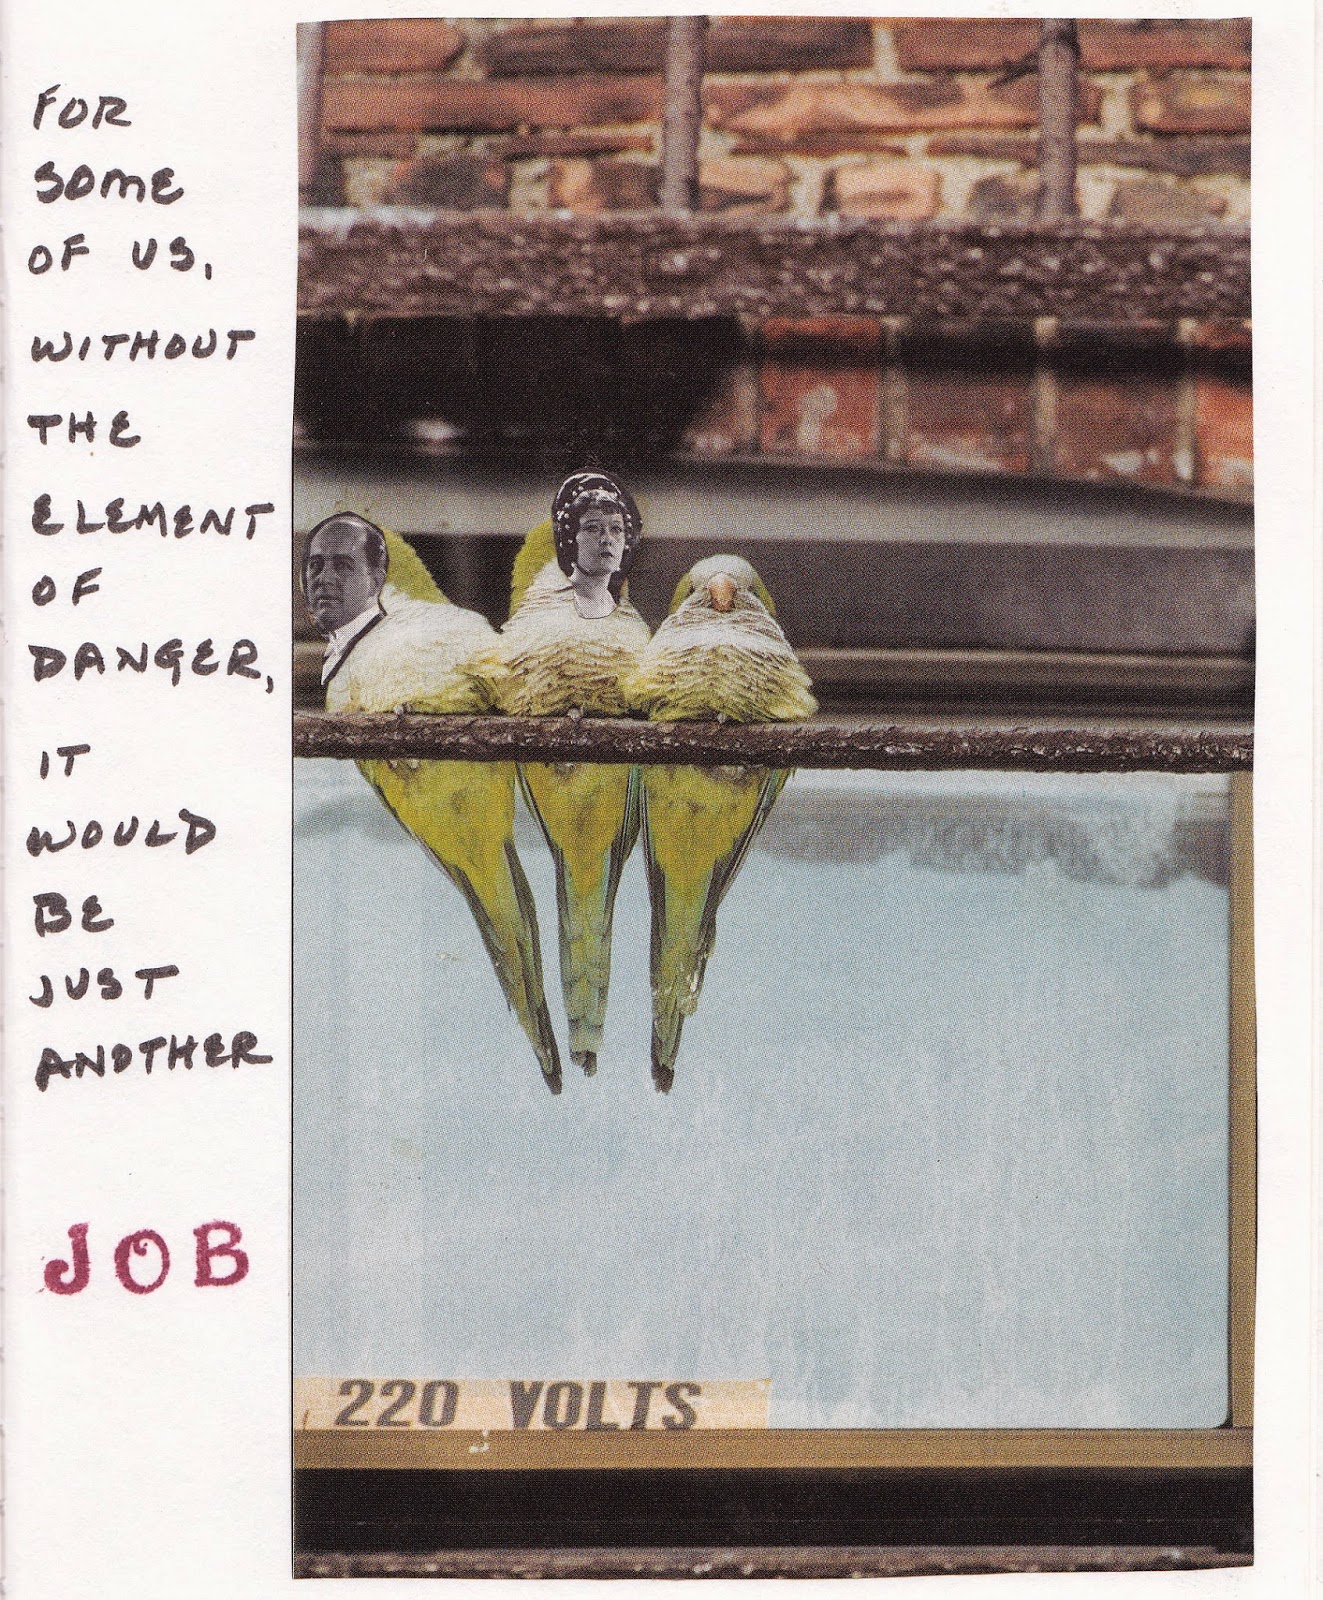 FOR
SOME
OF US,
WITHOUT
THE
ELEMENT
OF
DANGER,
IT
WOULD
BE
JUST
ANOTHER
JOB
220 VOLTS